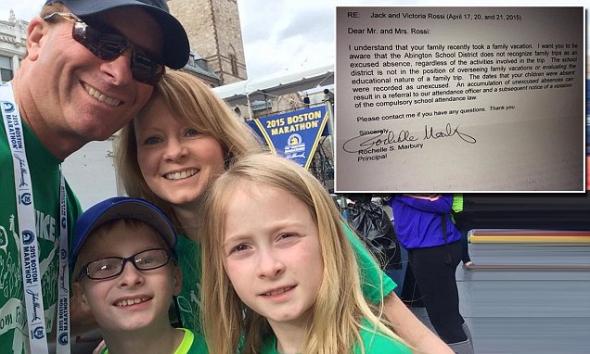 RE: Jack and Victoria Rossi (April 17, 20, and 21, 2015)
Dear Mr. and Mrs. Rossi:
I understand that your family recently took a family vacation. I want you to
be aware that the Abington School District does not recognize family trips as an
excused absence, regardless of the activities involved in the trip. The school
district is not in the position of overseeing family vacations or evaluating the
educational nature of a family trip. The dates that your children were absent
were recorded as unexcused. An accumulation of unexcused absences can
result in a referral to our attendance officer and a subsequent notice of a violation
of the compulsory school attendance law.
Please contact me if you have any questions. Thank you.
Sincerely,
Rochelle S. Marbury
Principal
2015 BOSTON
MARATHON
2015 BOSTON